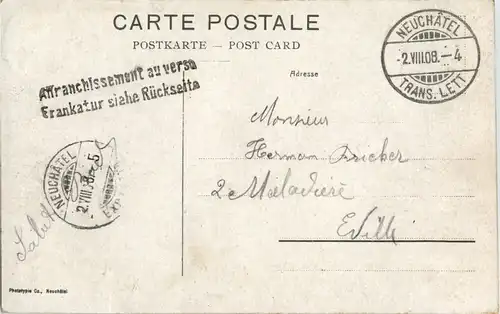 CARTE POSTALE
POSTKARTE – POST CARD
NEUCHÂTEL
-2.VIII.08.–4
TRANS. LETT
Affranchissement au verso
Frankatur siahe Rückseite
Adresse
Monsieur
Hermann Bricker
2 Maladière
E. Ville
NEUCHÂTEL
2.VIII.08.–5
Salut
Phototypie Co., Neuchâtel